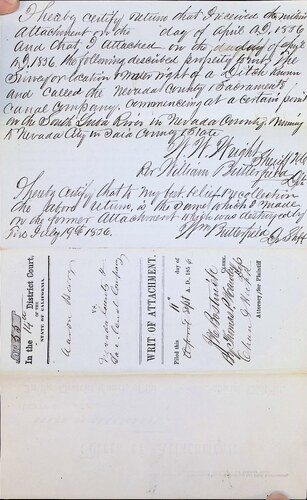 I hereby certify & return that I received the within
Attachment on the day of April A.D. 1856
And that I attached on the day of April
A.D. 1856. the following described property to wit, The
Survey or location & water right of a Ditch known
and called the Nevada County & Sacramento
Canal Company. Commencing at a certain point
on the South Yuba River in Nevada County. Running
to Nevada City in said County & State
W. W. Wright Sheriff
By William Butterfield
I hereby certify that to my best belief & recollection
the above return, is the same which I made
by the former Attachment which was destroyed by
fire July 19th 1856.
Wm Butterfield
In the 14th District Court,
OF THE
STATE OF CALIFORNIA.
Aaron
vs
Nevada County &
Sac. Canal Company
WRIT OF ATTACHMENT.
Filed this 11th day of
Sept A.D. 1856
Attorney for Plaintiff